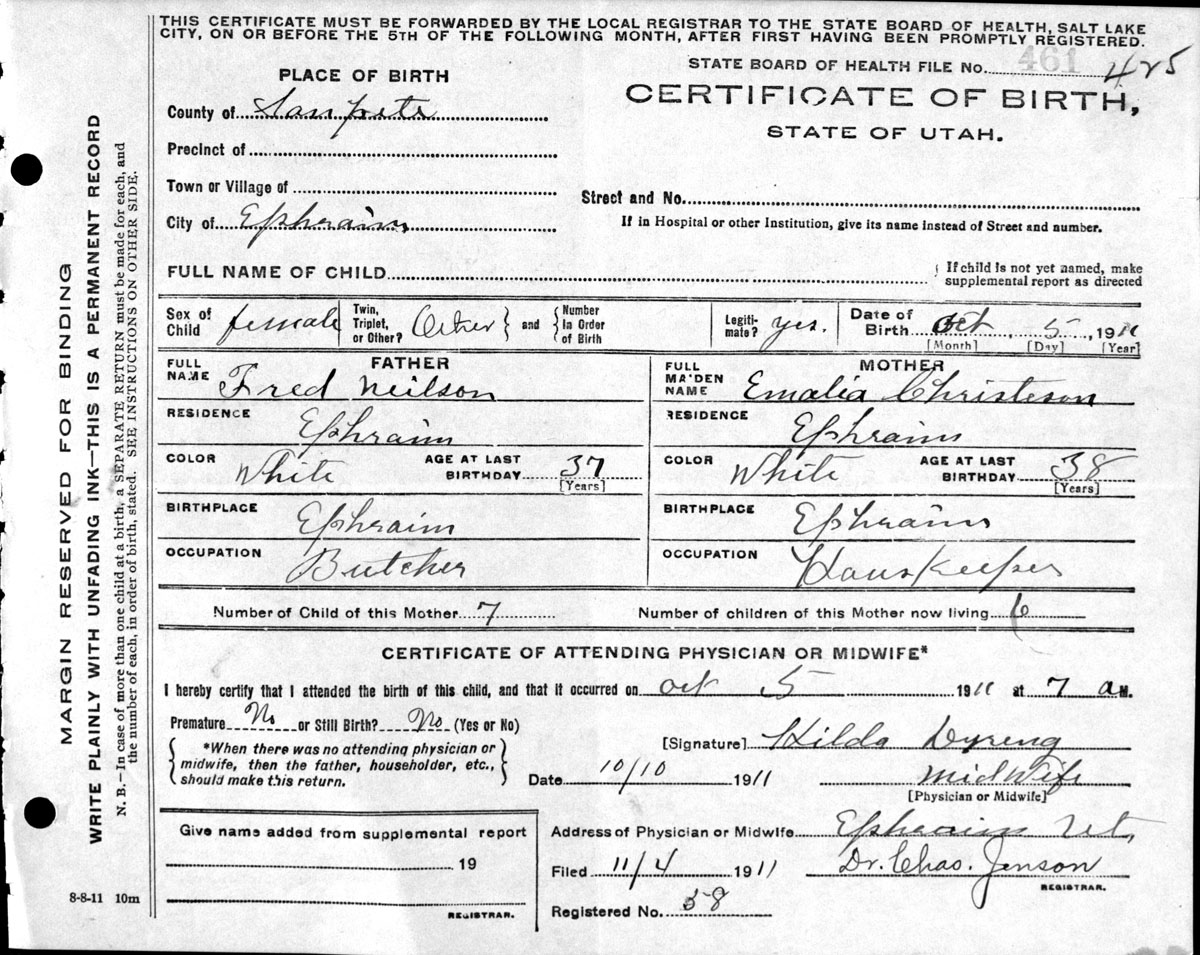 THIS CERTIFICATE MUST BE FORWARDED BY THE LOCAL REGISTRAR TO THE STATE BOARD OF HEALTH, SALT LAKE
CITY, ON OR BEFORE THE 5TH OF THE FOLLOWING MONTH, AFTER FIRST HAVING BEEN PROMPTLY REGISTERED.
STATE BOARD OF HEALTH FILE No. 461 425
PLACE OF BIRTH
CERTIFICATE OF BIRTH,
STATE OF UTAH.
County of Sanpete
Precinct of
Town or Village of
Street and No.
City of Ephraim
If in Hospital or other Institution, give its name instead of Street and number.
FULL NAME OF CHILD
If child is not yet named, make
supplemental report as directed
Sex of Child female Twin, Triplet, or Other? Other and Number In Order of Birth Legiti- mate? yes. Date of Birth Oct 5, 1911
[Month] [Day] [Year]
FATHER MOTHER
FULL NAME Fred Neilson FULL MAIDEN NAME Emalia Christeson
RESIDENCE Ephraim RESIDENCE Ephraim
COLOR White AGE AT LAST BIRTHDAY 37 [Years] COLOR White AGE AT LAST BIRTHDAY 38 [Years]
BIRTHPLACE Ephraim BIRTHPLACE Ephraim
OCCUPATION Butcher OCCUPATION HousKeeper
Number of Child of this Mother 7 Number of children of this Mother now living 6
CERTIFICATE OF ATTENDING PHYSICIAN OR MIDWIFE*
I hereby certify that I attended the birth of this child, and that it occurred on oct 5 1911 at 7 a M.
Premature No or Still Birth? No (Yes or No)
*When there was no attending physician or
midwife, then the father, householder, etc.,
should make this return.
[Signature] Hilda Dyreng
Date 10/10 1911 MidWife
[Physician or Midwife]
Give name added from supplemental report
19
REGISTRAR.
Address of Physician or Midwife Ephraim Ut,
Filed 11/4 1911 Dr. Chas. Jenson
REGISTRAR.
Registered No. 58
8-8-11 10m
MARGIN RESERVED FOR BINDING
WRITE PLAINLY WITH UNFADING INK—THIS IS A PERMANENT RECORD
N. B.—In case of more than one child at a birth, a SEPARATE RETURN must be made for each, and
the number of each, in order of birth, stated. SEE INSTRUCTIONS ON OTHER SIDE.